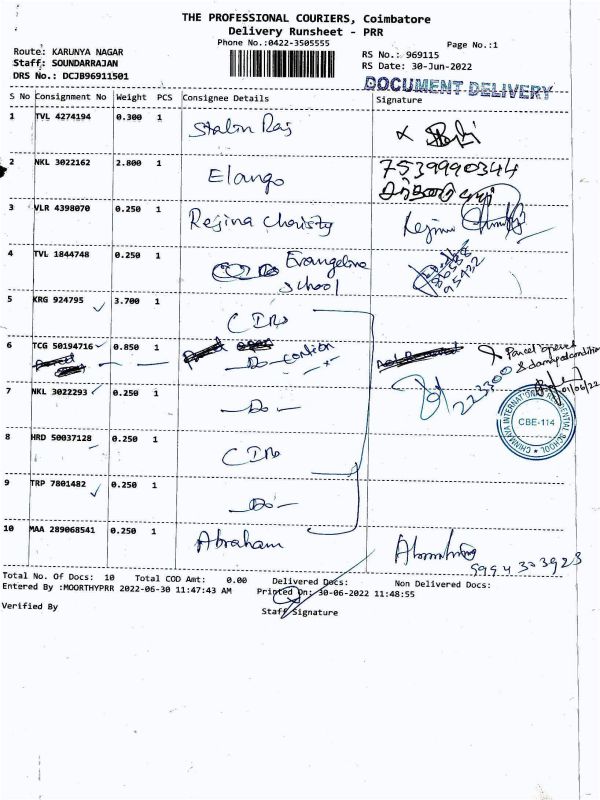 THE PROFESSIONAL COURIERS, Coimbatore
Delivery Runsheet - PRR
Phone No.:0422-3505555
Page No.:1
Route: KARUNYA NAGAR
RS No.: 969115
Staff: SOUNDARRAJAN
RS Date: 30-Jun-2022
DRS No.: DCJB96911501
DOCUMENT DELIVERY
S No Consignment No Weight PCS Consignee Details Signature
1 TVL 4274194 0.300 1 Stalin Raj
2 NKL 3022162 2.800 1 Elango 7539990344
3 VLR 4398070 0.250 1 Regina Christy
4 TVL 1844748 0.250 1 Evangeline School
5 KRG 924795 3.700 1
6 TCG 50194716 0.850 1 - Do -
Parcel opened & damaged condition
223300
01/06/22
7 NKL 3022293 0.250 1 - Do -
CHINMAYA INTERNATIONAL RESIDENTIAL SCHOOL
CBE-114
8 HRD 50037128 0.250 1
9 TRP 7801482 0.250 1 - Do -
10 MAA 289068541 0.250 1 Abraham
9994323923
Total No. Of Docs: 10 Total COD Amt: 0.00 Delivered Docs: Non Delivered Docs:
Entered By :MOORTHYPRR 2022-06-30 11:47:43 AM Printed On: 30-06-2022 11:48:55
Verified By Staff Signature